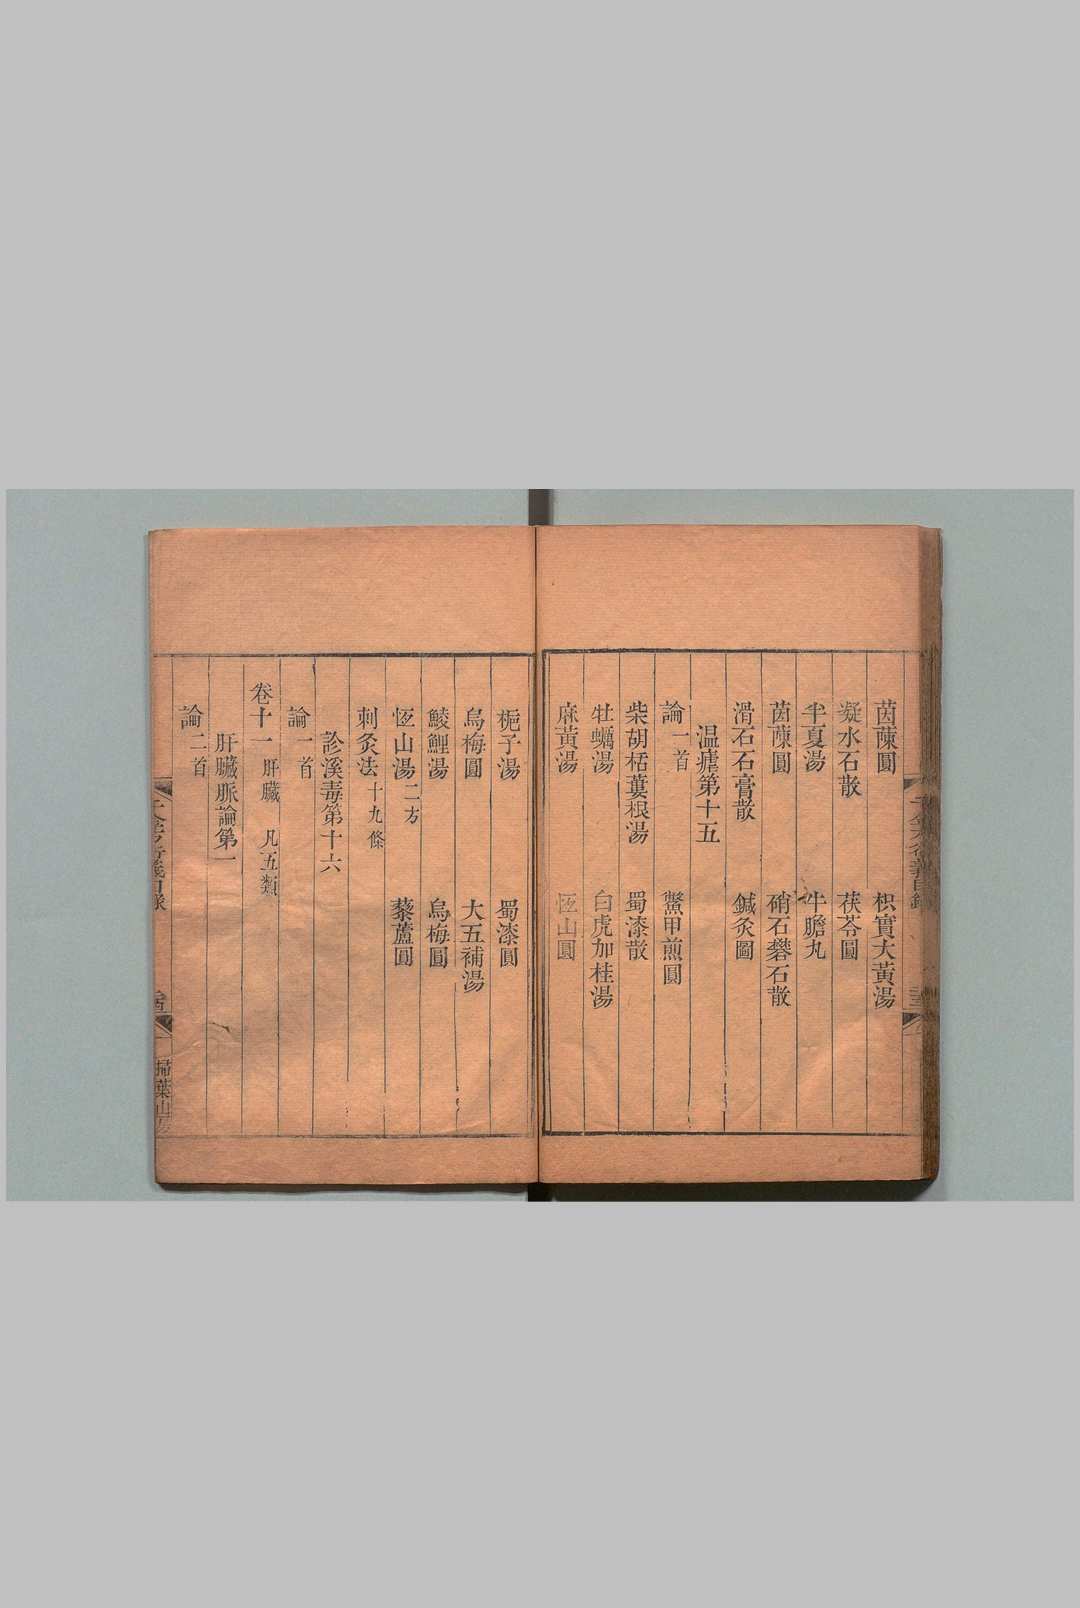 茵蔯圓　枳實大黃湯
凝水石散　茯苓圓
半夏湯　牛膽丸
茵蔯圓　硝石礬石散
滑石石膏散　鍼灸圖
温瘧第十五
論一首　鱉甲煎圓
柴胡栝蔞根湯　蜀漆散
牡蠣湯　白虎加桂湯
麻黃湯　恆山圓
梔子湯　蜀漆圓
烏梅圓　大五補湯
鯪鯉湯　烏梅圓
恆山湯二方　藜蘆圓
刺灸法十九條
診溪毒第十六
論一首
卷十一　肝臟　凡五類
肝臟脈論第一
論二首
掃葉山房